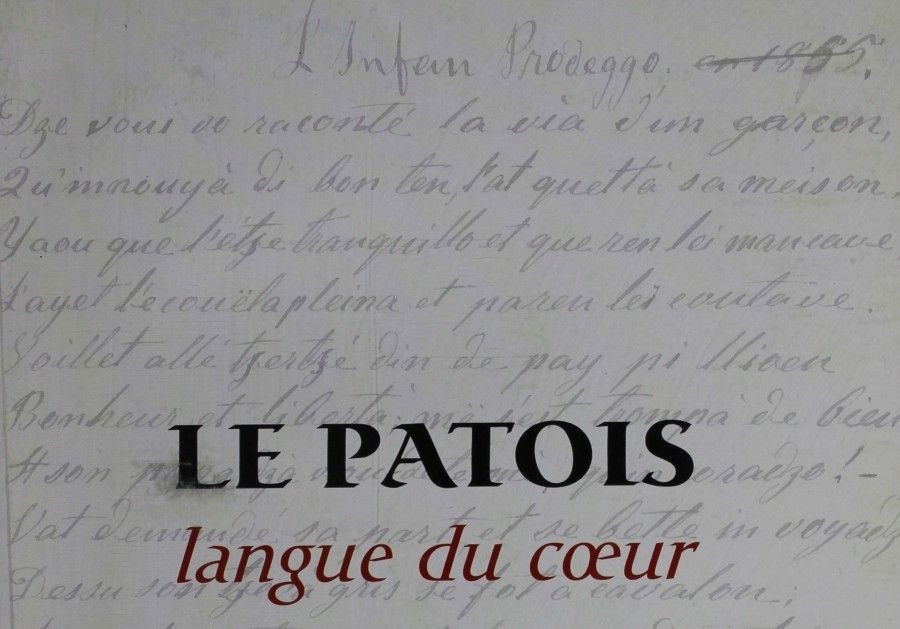 L'Infan Prodeggo. en 1855.
Dze vouì vo raconté la via d'un garçon,
Qu'innouyà di bon ten, l'at quettà sa meison,
Yaou que l'étze tranquillo et que ren lei mancave,
L'ayet l'ecouëla pleina et paren lei coutave.
Voillet allé tzertzé din de pay pi llioen
Bonheur et libertà: më s'est trompà de bien
LE PATOIS
A son oradzo! -
Vat demandé sa part et se bette in voyadz
langue du cœur
Dessu son gris se fot a cavalon;